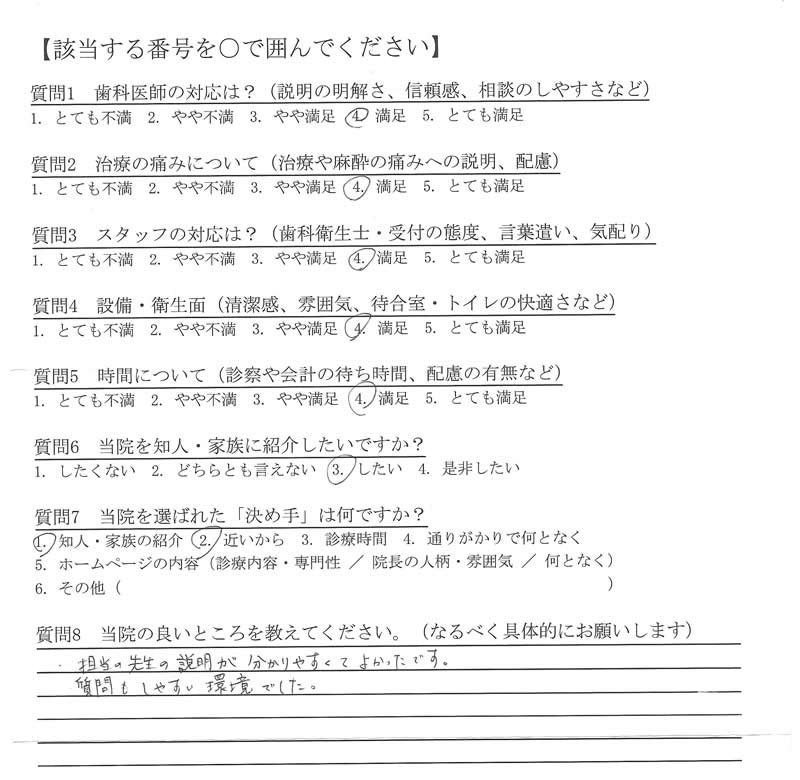 【該当する番号を○で囲んでください】
質問1 歯科医師の対応は？（説明の明解さ、信頼感、相談のしやすさなど）
1. とても不満 2. やや不満 3. やや満足 4. 満足 5. とても満足
質問2 治療の痛みについて（治療や麻酔の痛みへの説明、配慮）
1. とても不満 2. やや不満 3. やや満足 4. 満足 5. とても満足
質問3 スタッフの対応は？（歯科衛生士・受付の態度、言葉遣い、気配り）
1. とても不満 2. やや不満 3. やや満足 4. 満足 5. とても満足
質問4 設備・衛生面（清潔感、雰囲気、待合室・トイレの快適さなど）
1. とても不満 2. やや不満 3. やや満足 4. 満足 5. とても満足
質問5 時間について（診察や会計の待ち時間、配慮の有無など）
1. とても不満 2. やや不満 3. やや満足 4. 満足 5. とても満足
質問6 当院を知人・家族に紹介したいですか？
1. したくない 2. どちらとも言えない 3. したい 4. 是非したい
質問7 当院を選ばれた「決め手」は何ですか？
1. 知人・家族の紹介 2. 近いから 3. 診療時間 4. 通りがかりで何となく
5. ホームページの内容（診療内容・専門性 ／ 院長の人柄・雰囲気 ／ 何となく）
6. その他（ ）
質問8 当院の良いところを教えてください。（なるべく具体的にお願いします）
・担当の先生の説明が分かりやすくてよかったです。
質問もしやすい環境でした。